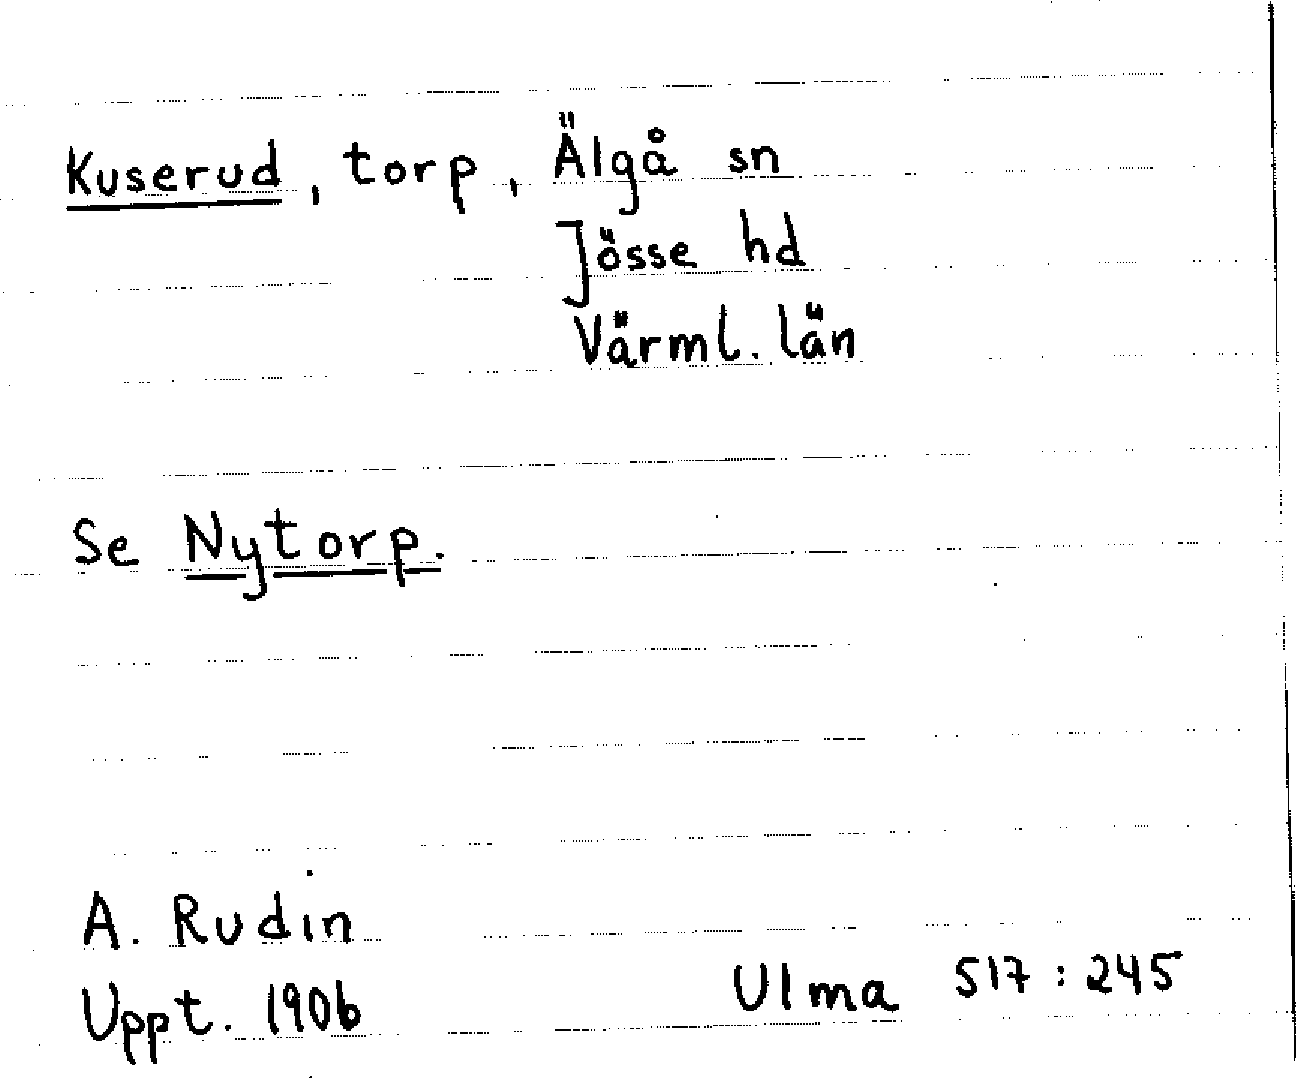 Kuserud, torp, Älgå sn
Jösse hd
Värml. län
Se Nytorp.
A. Rudin
Uppt. 1906
Ulma 517:245